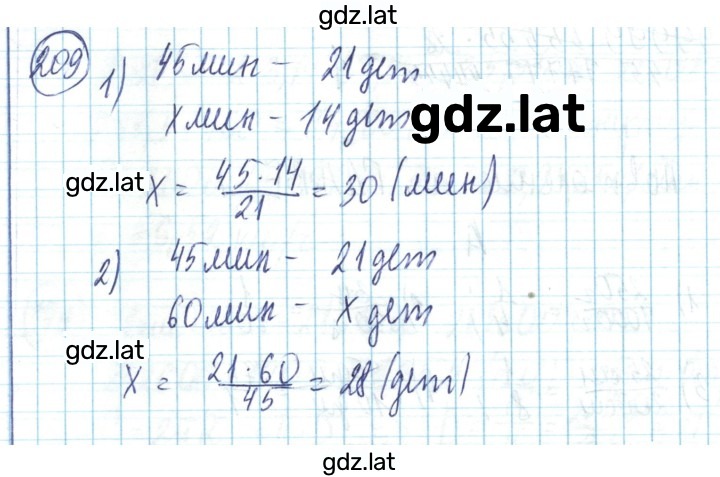 gdz.lat
209
1) 45 мин - 21 дет
x мин - 14 дет
gdz.lat
gdz.lat
x = 45·14/21 = 30 (мин)
2) 45 мин - 21 дет
60 мин - x дет
gdz.lat
x = 21·60/45 = 28 (дет)
gdz.lat